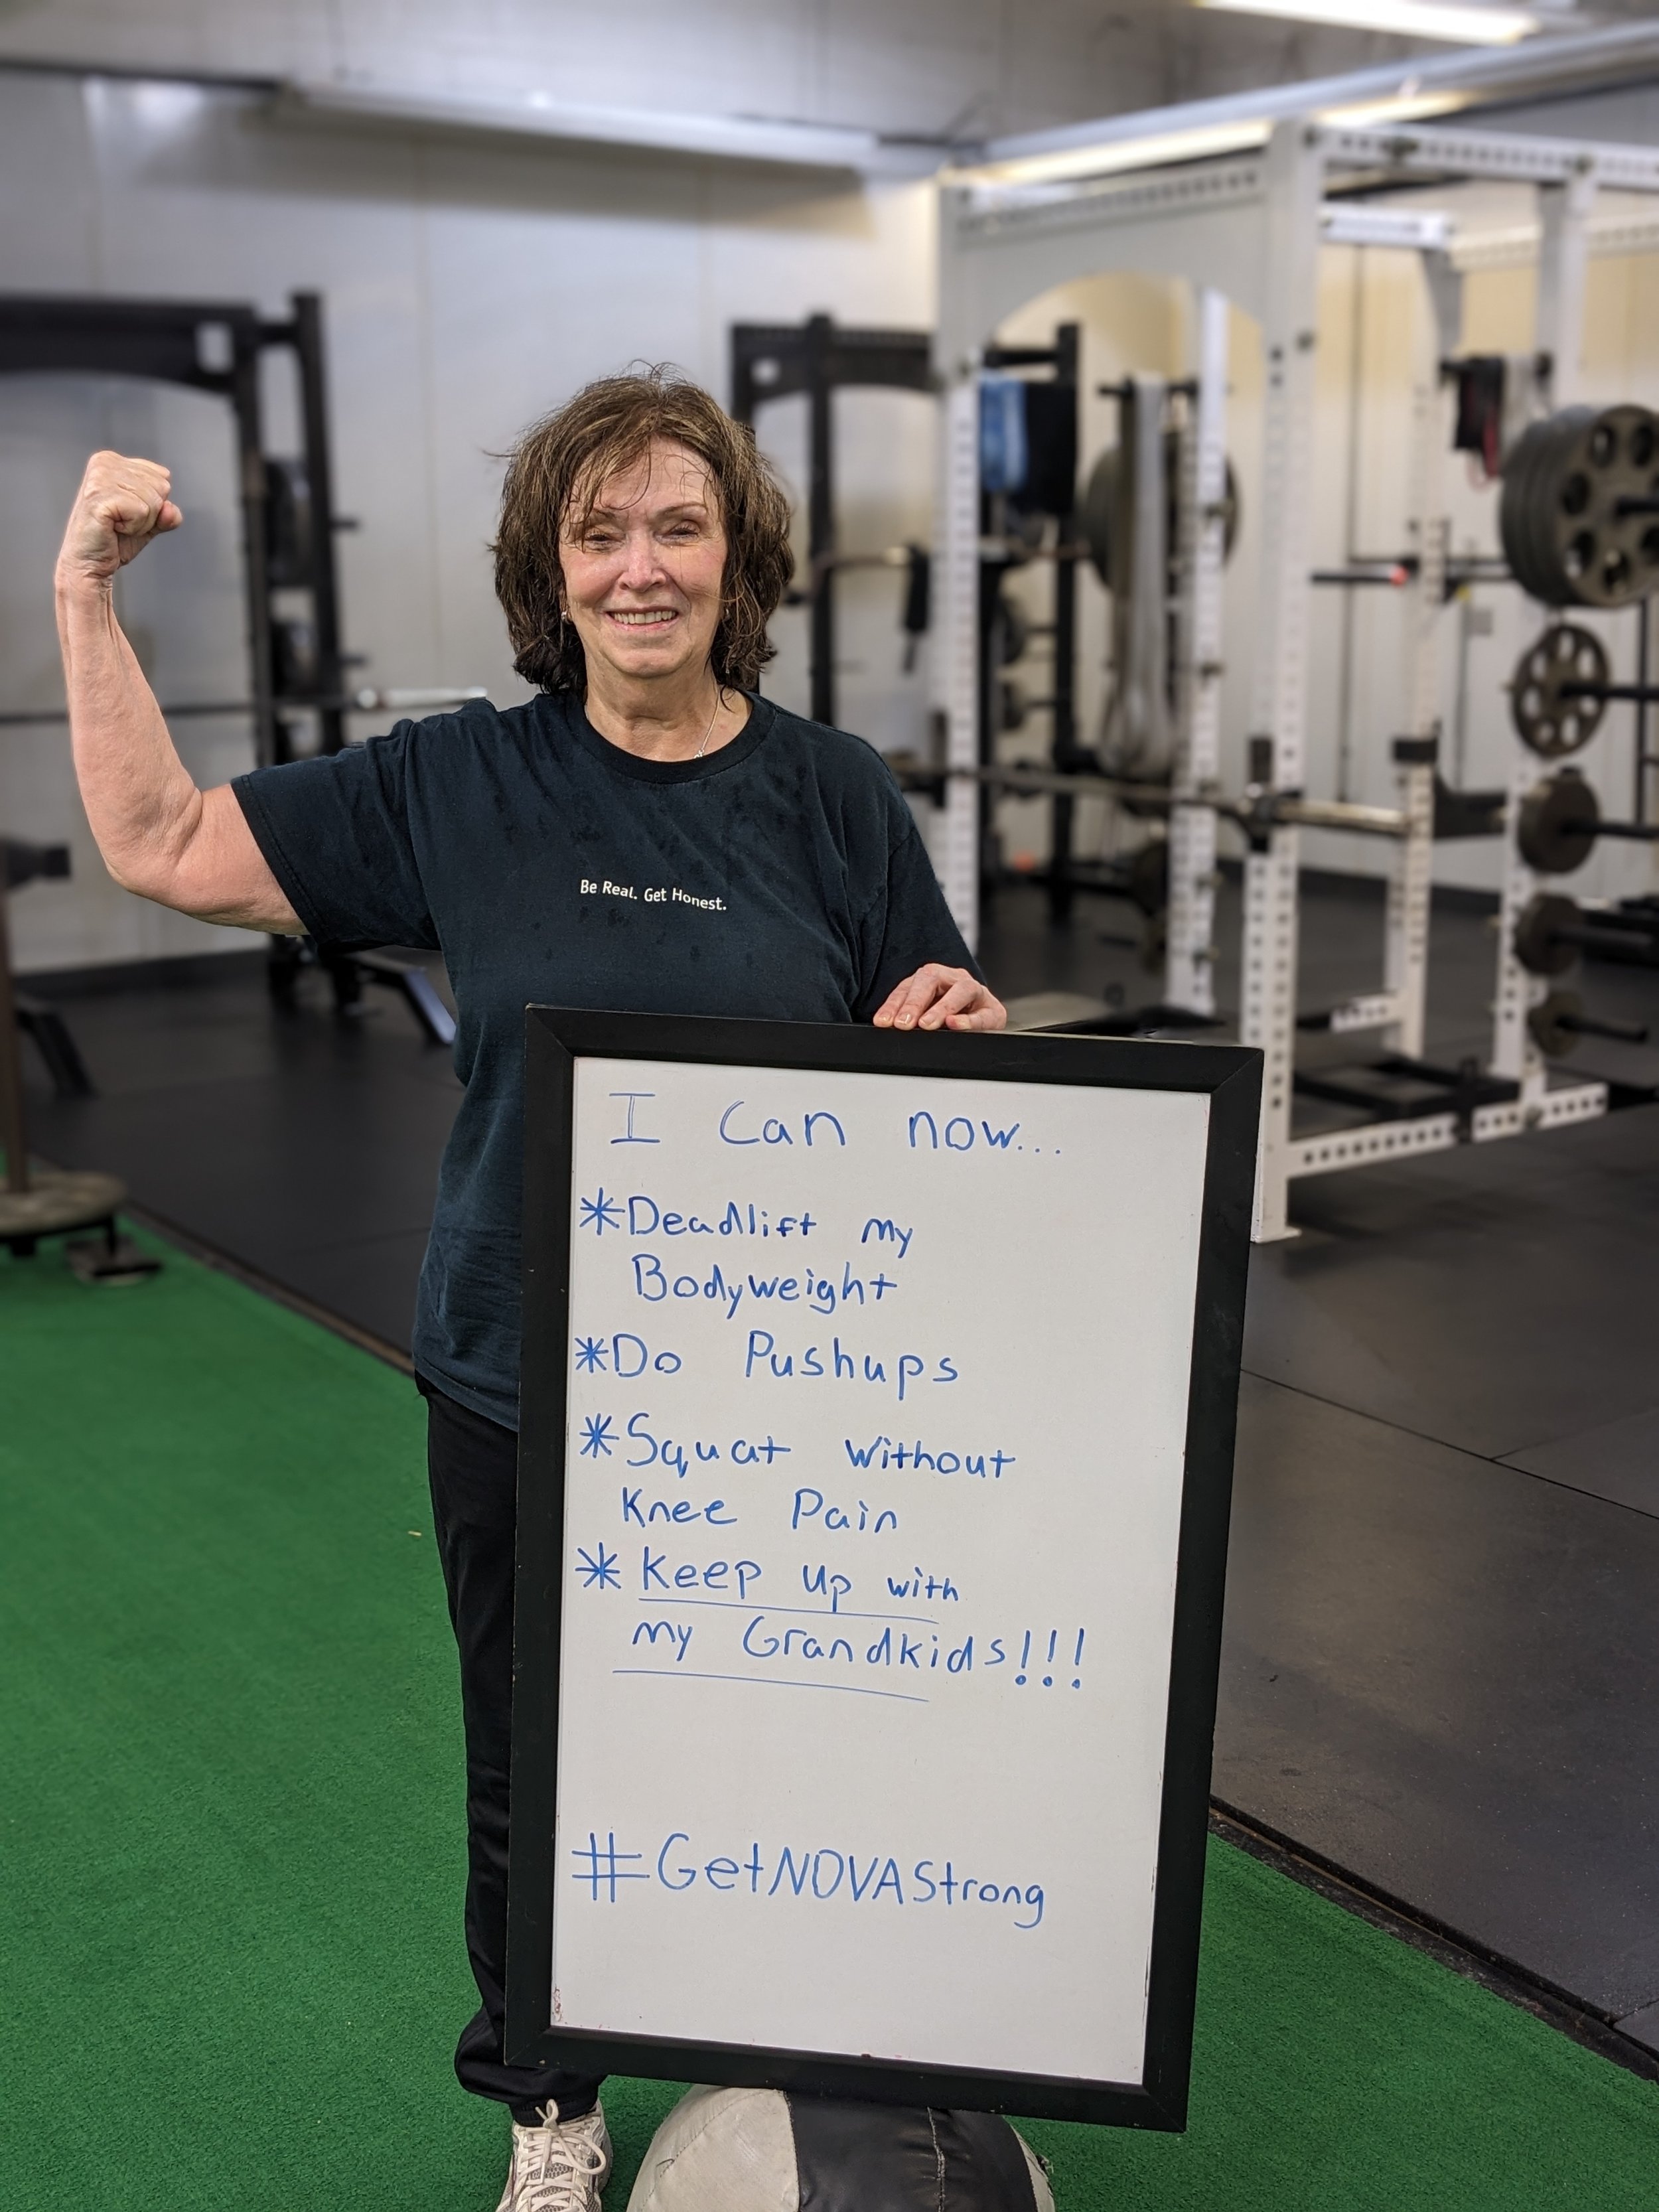 Be Real. Get Honest.
I can now...
*Deadlift my
Bodyweight
*Do Pushups
*Squat without
Knee Pain
* Keep up with
my Grandkids!!!
#GetNOVAStrong